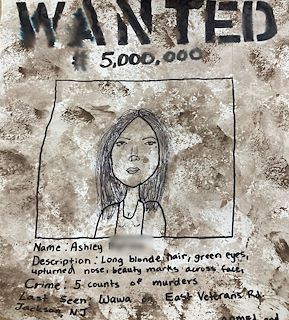 WANTED
$ 5,000,000
Name: Ashley
Description: Long blonde hair, green eyes,
upturned nose, beauty marks across face,
Crime: 5 counts of murders
Last Seen: Wawa on East Veterans Rd.
Jackson NJ
armed and